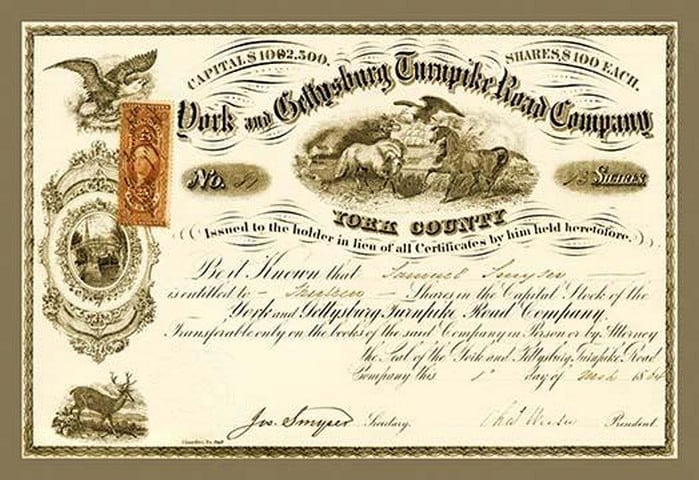 CAPITAL $1002.500.
SHARES, $100 EACH.
York and Gettysburg Turnpike Road Company
No.
13 SHARES
YORK COUNTY
Issued to the holder in lieu of all Certificates by him held heretofore.
Be it Known that Samuel Smyser
is entitled to Thirteen Shares in the Capital Stock of the
York and Gettysburg Turnpike Road Company,
Transferable only on the books of the said Company in Person or by Attorney
the Seal of the York and Gettysburg Turnpike Road
Company this 1st day of March 1864
Jos. Smyser Secretary.
President.